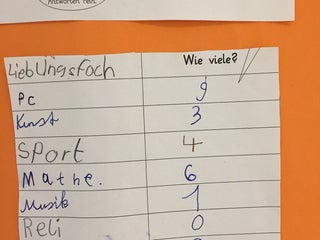 Antworten rein.
Lieblingsfach Wie viele?
PC 9
Kunst 3
Sport 4
Mathe. 6
Musik 1
Reli 0